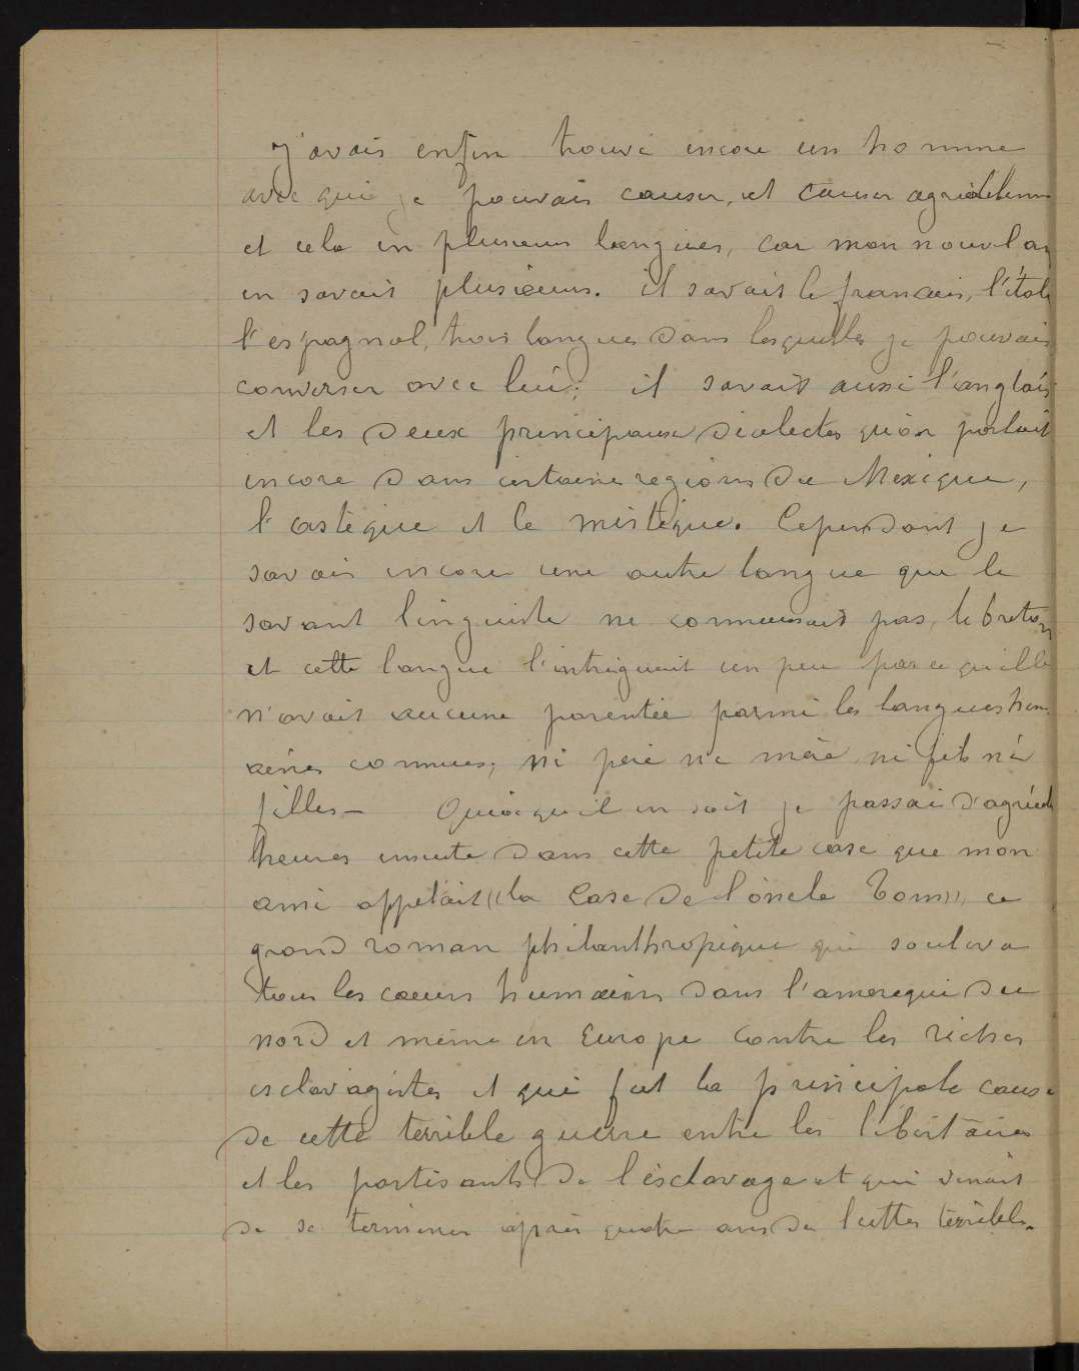 J'avais enfin trouvé encore un homme
avec qui je pouvais causer, et causer
et cela en plusieurs langues, car mon nouvel
en savait plusieurs. il savait le francais,
l'espagnol, trois langues dans lesquelles je pouvais
converser avec lui; il savait aussi l'anglais
et les deux principaux dialectes qu'on parlait
encore dans certaine regions du Mexique,
l'astèque et le mistèque. Cependant je
savais encore une autre langue que le
savant linguiste ne connaissait pas, le breton
et cette langue l'intriguait un peu parce qu'elle
n'avait aucune parentée parmi les langues
connues; ni père ni mère ni fils ni
filles — Quoiqu'il en soit je passai
heures ensuite dans cette petite case que mon
ami appelait «la Case de l'oncle Tom», ce
grand roman philanthropique qui souleva
tous les coeurs humains dans l'amerique du
nord et même en Europe contre les riches
esclavagistes et qui fut la principale cause
de cette terrible guerre entre les libertaires
et les partisants de l'ésclavage et qui venait
de se terminer après quatre ans de luttes terribles.